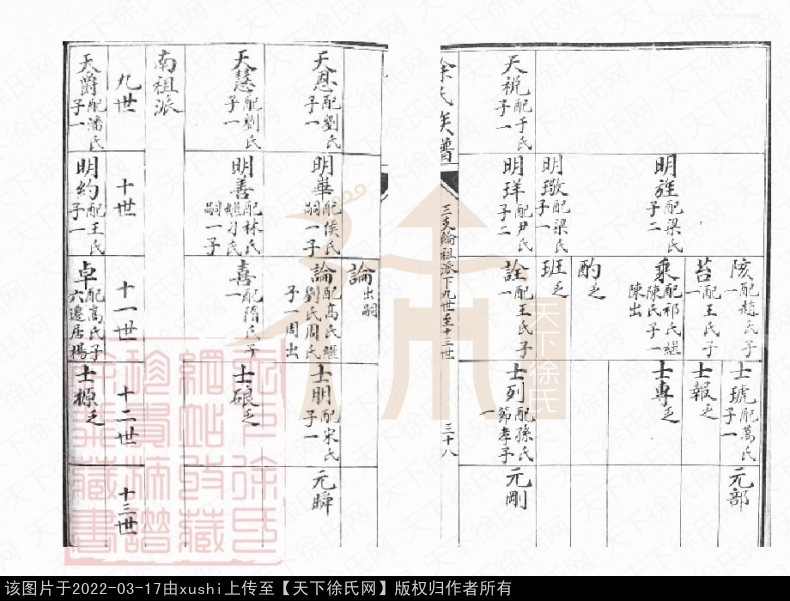 陔配趙氏子一
士琥配萬氏子一
元部
苔配王氏子一
士報乏
明旌配梁氏子二
乘配祁氏継陳氏子一陳出
士專乏
酌乏
明璬配梁氏子一
班乏
天祝配于氏子一
明珜配尹氏子二
詮配王氏子一
士列配孫氏節孝子一
元剛
徐氏族譜
三支綸祖派下九世至十三世
三十八
論出嗣
天恩配劉氏子一
明華配侯氏嗣一子
論配高氏継劉氏周氏子一周出
士明配宋氏子一
元瞬
天慧配劉氏子一
明善配林氏継刁氏嗣一子
喜配隋氏子一
士硠乏
南祖派
九世
十世
十一世
十二世
十三世
天爵配潘氏子一
明約配王氏子一
卓配高氏子六遷居楊
士㮩乏
天下徐氏
该图片于2022-03-17由xushi上传至【天下徐氏网】版权归作者所有